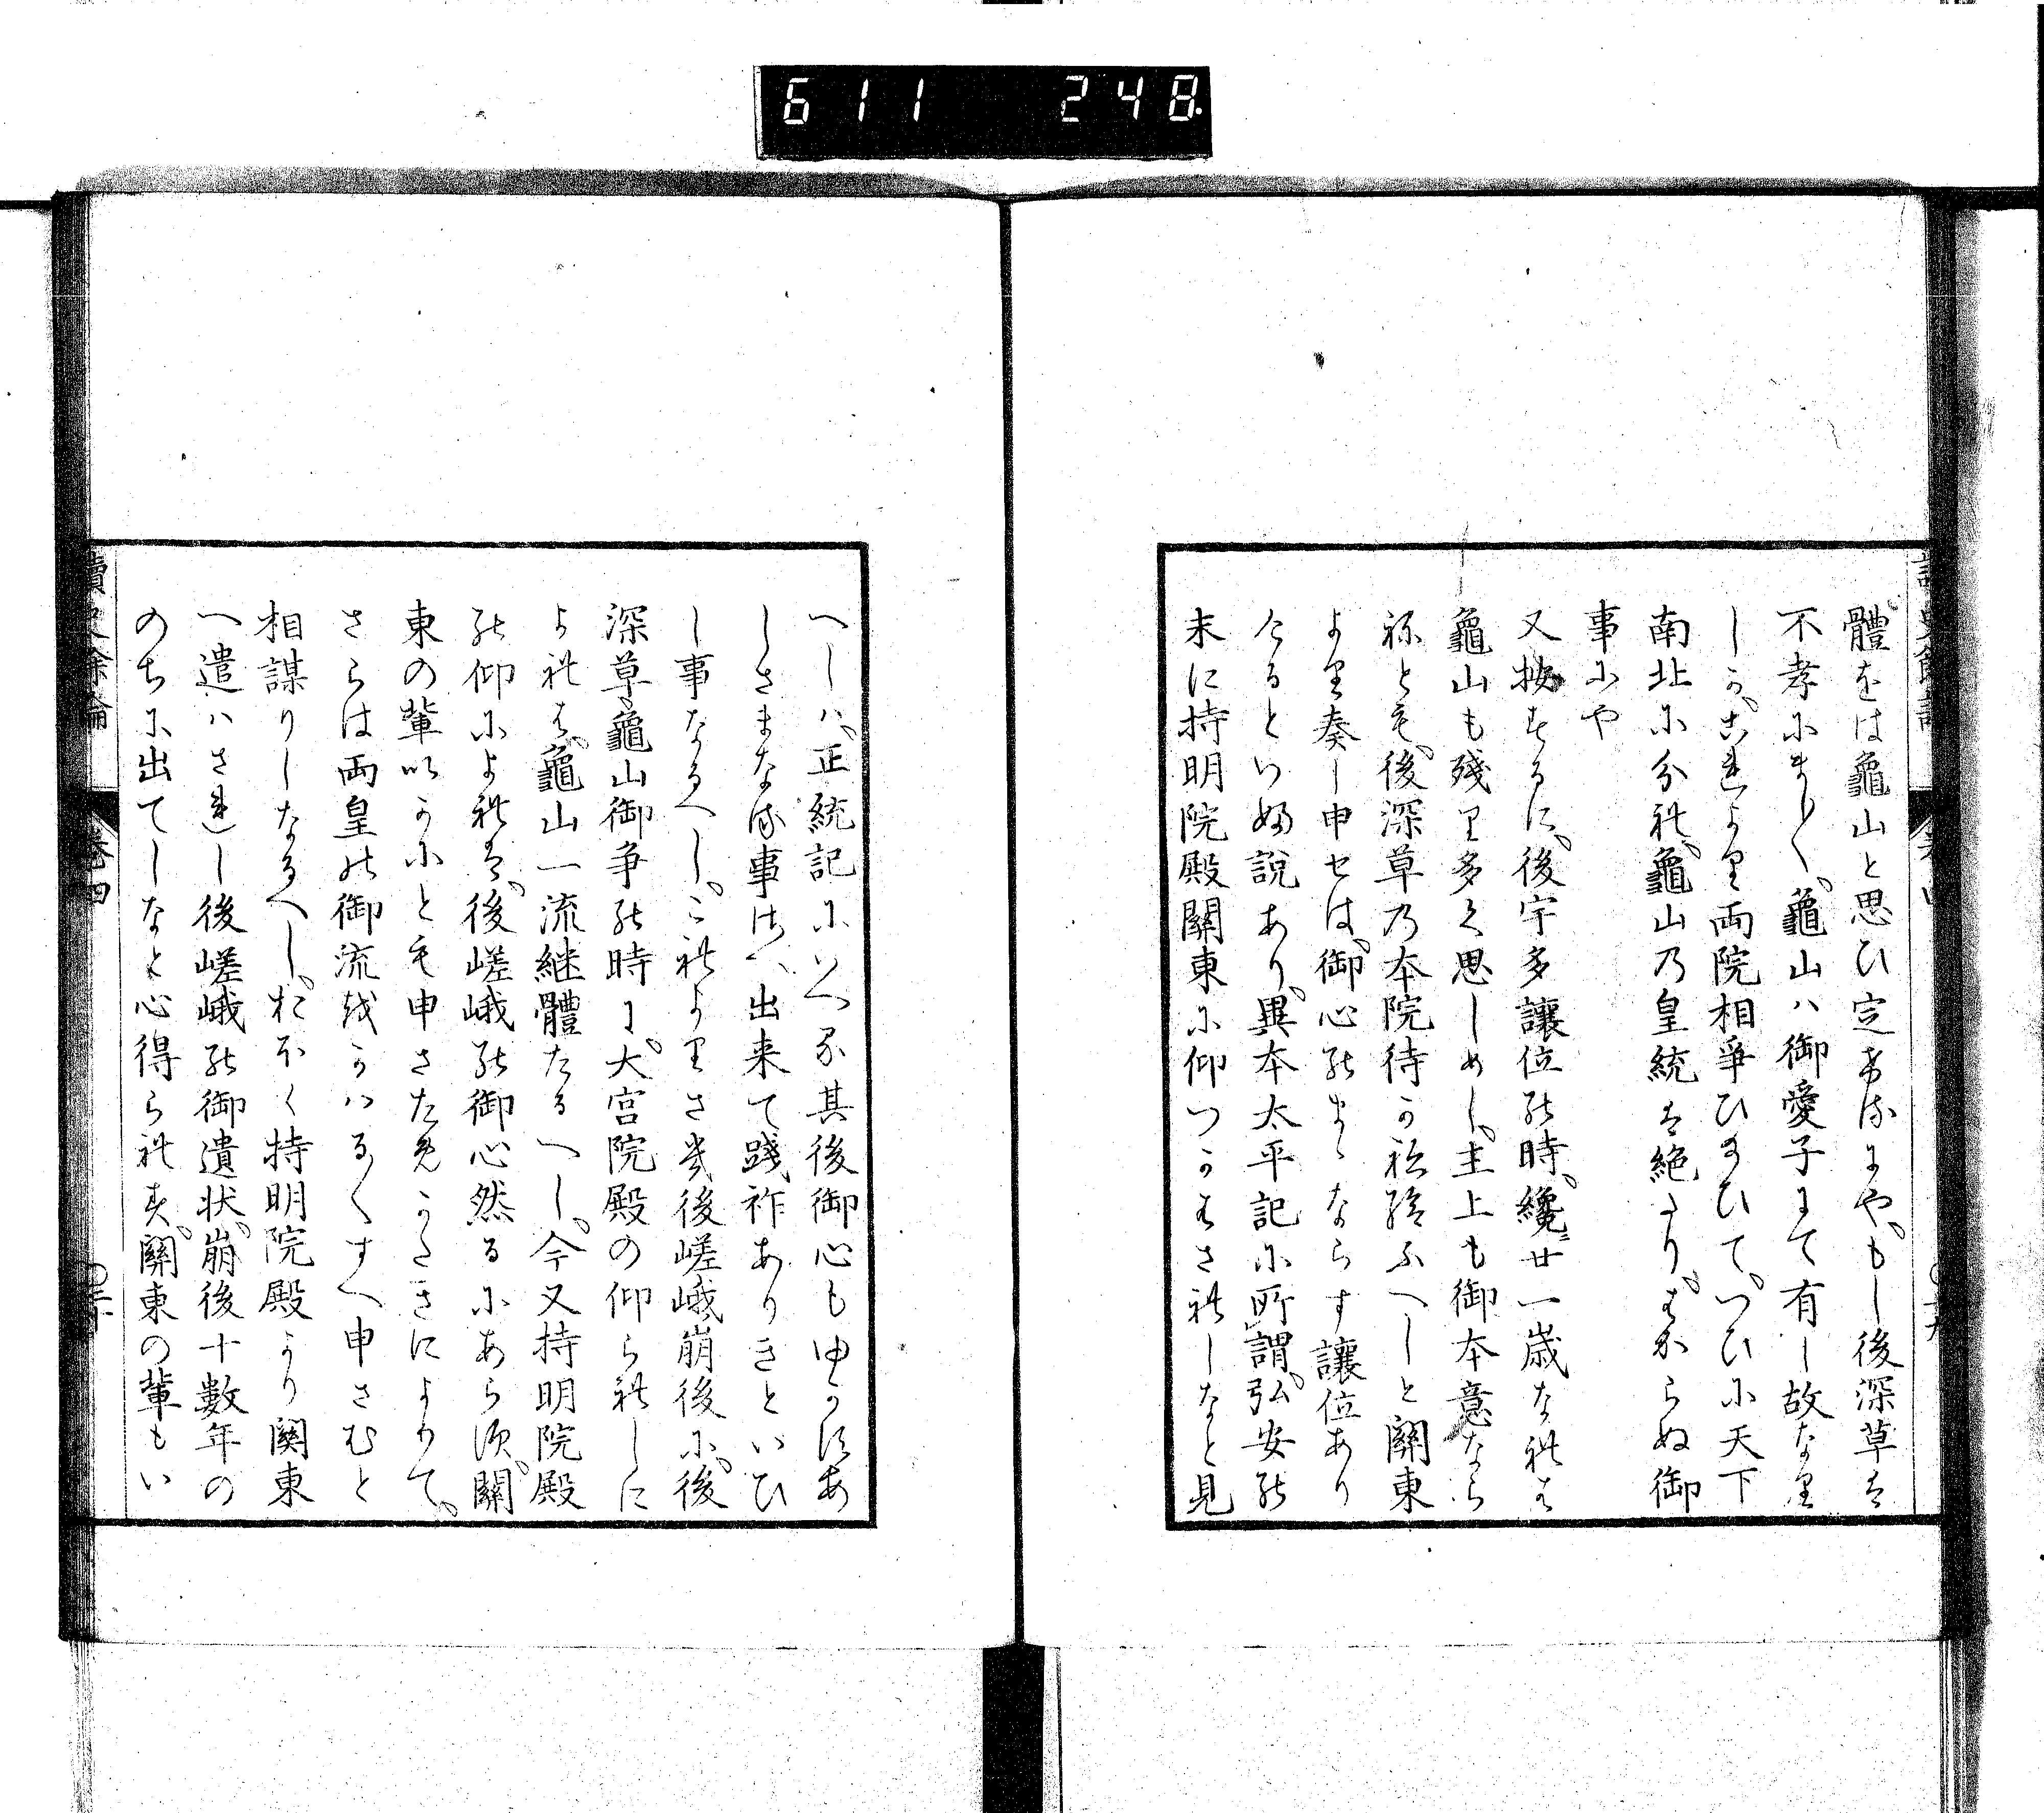 611 248
讀史餘論 巻四
體をは龜山と思ひ定めるにや、もし後深草は
不孝にましく、龜山ハ御愛子にて有し故なり
しか、これより両院相爭ひ給ひて、つひに天下
南北に分れ、龜山の皇統は絶たり、はからぬ御
事にや
又按するに、後宇多讓位の時、纔廿一歳なれは
龜山も殘り多く思しめし、主上も御本意なら
ねとも、後深草の本院待か祢給ふへしと關東
より奏し申せは、御心のまゝならす讓位あり
たるといふ說あり、異本太平記に所謂、弘安の
末に持明院殿關東に仰つかはされしなと見
へしハ、正統記にいへる其後御心もゆかすあ
しさまなる事さへ出来て踐祚ありきといひ
し事なるへし、これよりさき後嵯峨崩後に、後
深草、龜山御争の時に、大宮院殿の仰られしに
よれは、龜山一流継體たるへし、今又持明院殿
の仰によれは、後嵯峨の御心然るにあらす、關
東の輩いかにとも申さためかたきによりて、
さらは両皇の御流をかハるくすへ申さむと
相謀りしなるへし、おほく持明院殿より關東
へ遣ハされし後嵯峨の御遺状、崩後十數年の
のちに出てしなと心得られす、關東の輩もい
讀史餘論 巻四 〇三十